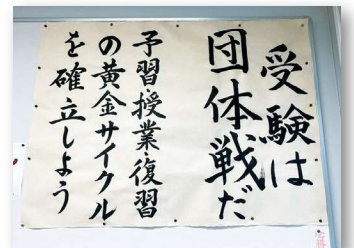 受験は
団体戦だ
予習・授業・復習
の黄金サイクル
を確立しよう